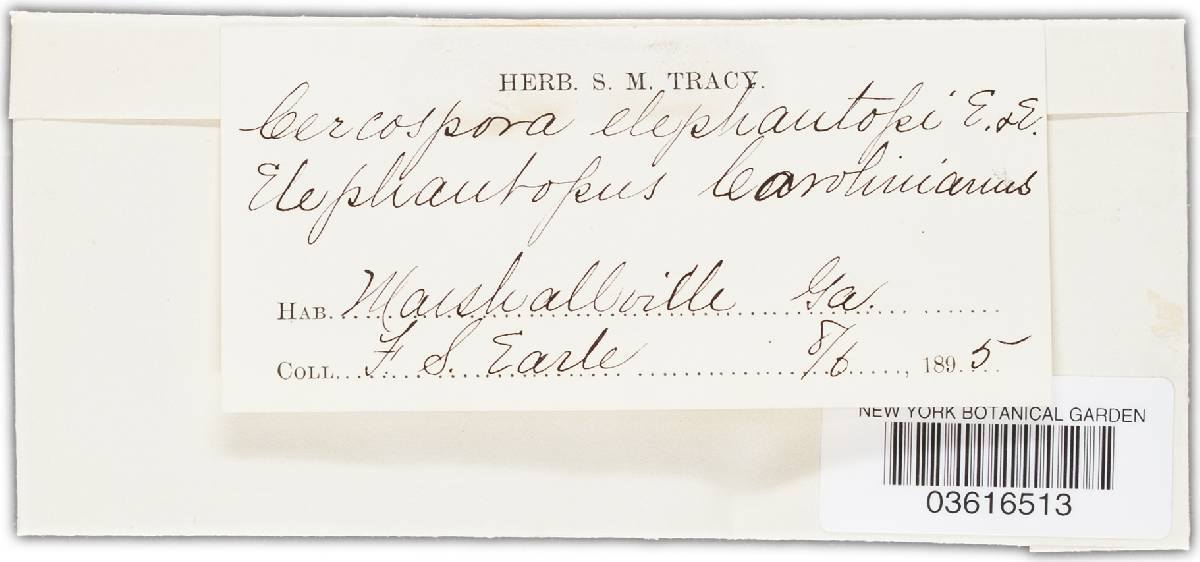 HERB. S. M. TRACY.
Cercospora elephantopi E. & E.
Elephantopus Carolinianus
HAB. Marshallville Ga.
COLL. F. S. Earle 8/6, 1895
NEW YORK BOTANICAL GARDEN
03616513